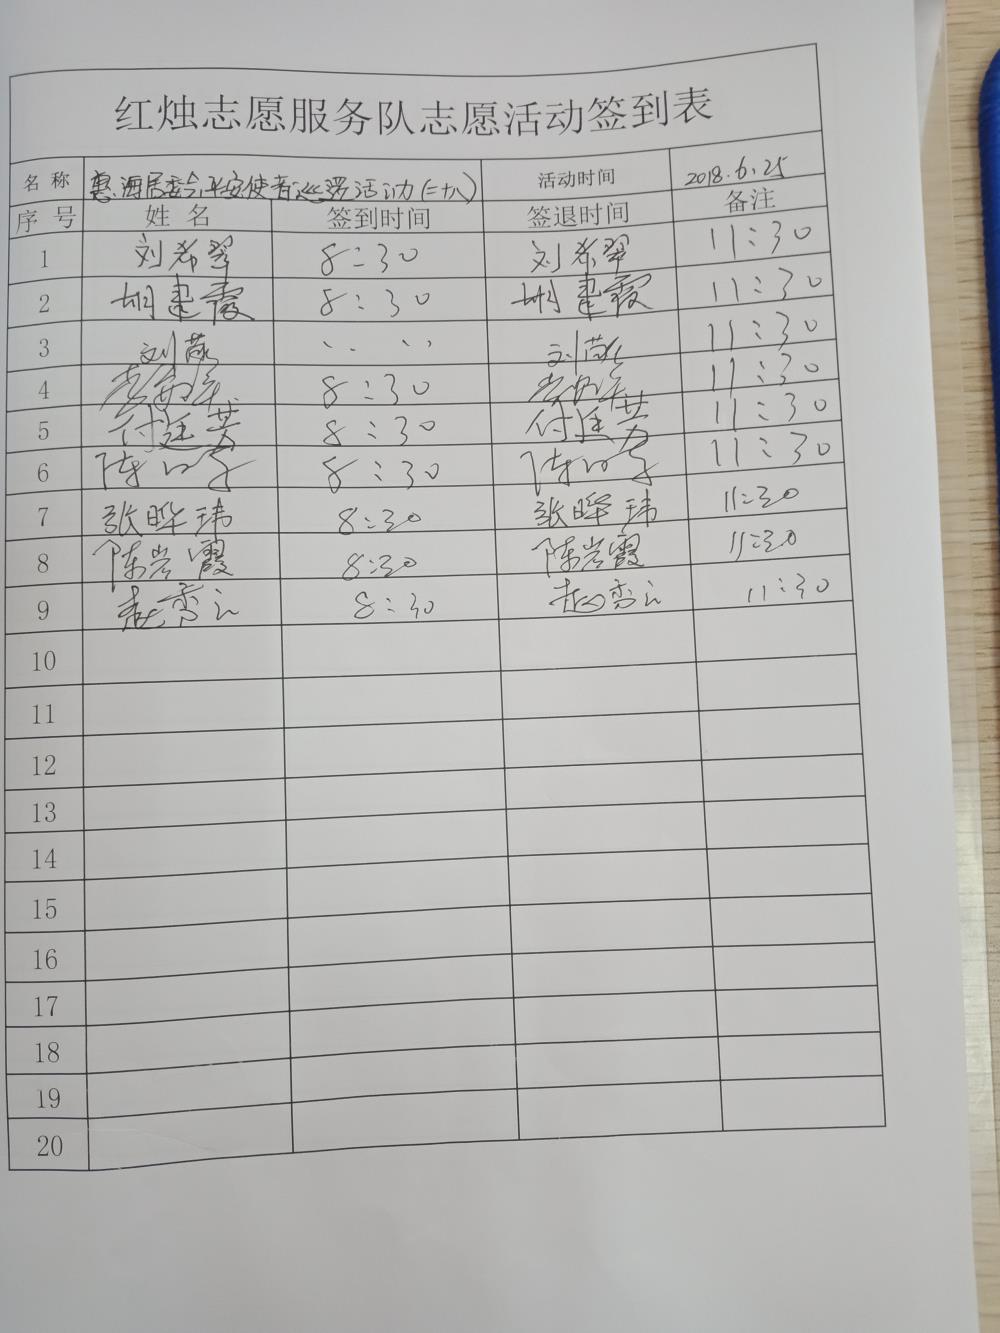 红烛志愿服务队志愿活动签到表
名称 惠海居委会平安使者巡逻活动(二十八) 活动时间 2018.6.25
序号 姓名 签到时间 签退时间 备注
1 刘希翠 8:30 刘希翠 11:30
2 胡建霞 8:30 胡建霞 11:30
3 刘燕 刘燕 11:30
4 8:30 11:30
5 付廷芳 8:30 付廷芳 11:30
6 陈 8:30 陈 11:30
7 张晔玮 8:30 张晔玮 11:30
8 陈岩霞 8:30 陈岩霞 11:30
9 赵秀 8:30 赵秀 11:30
10
11
12
13
14
15
16
17
18
19
20